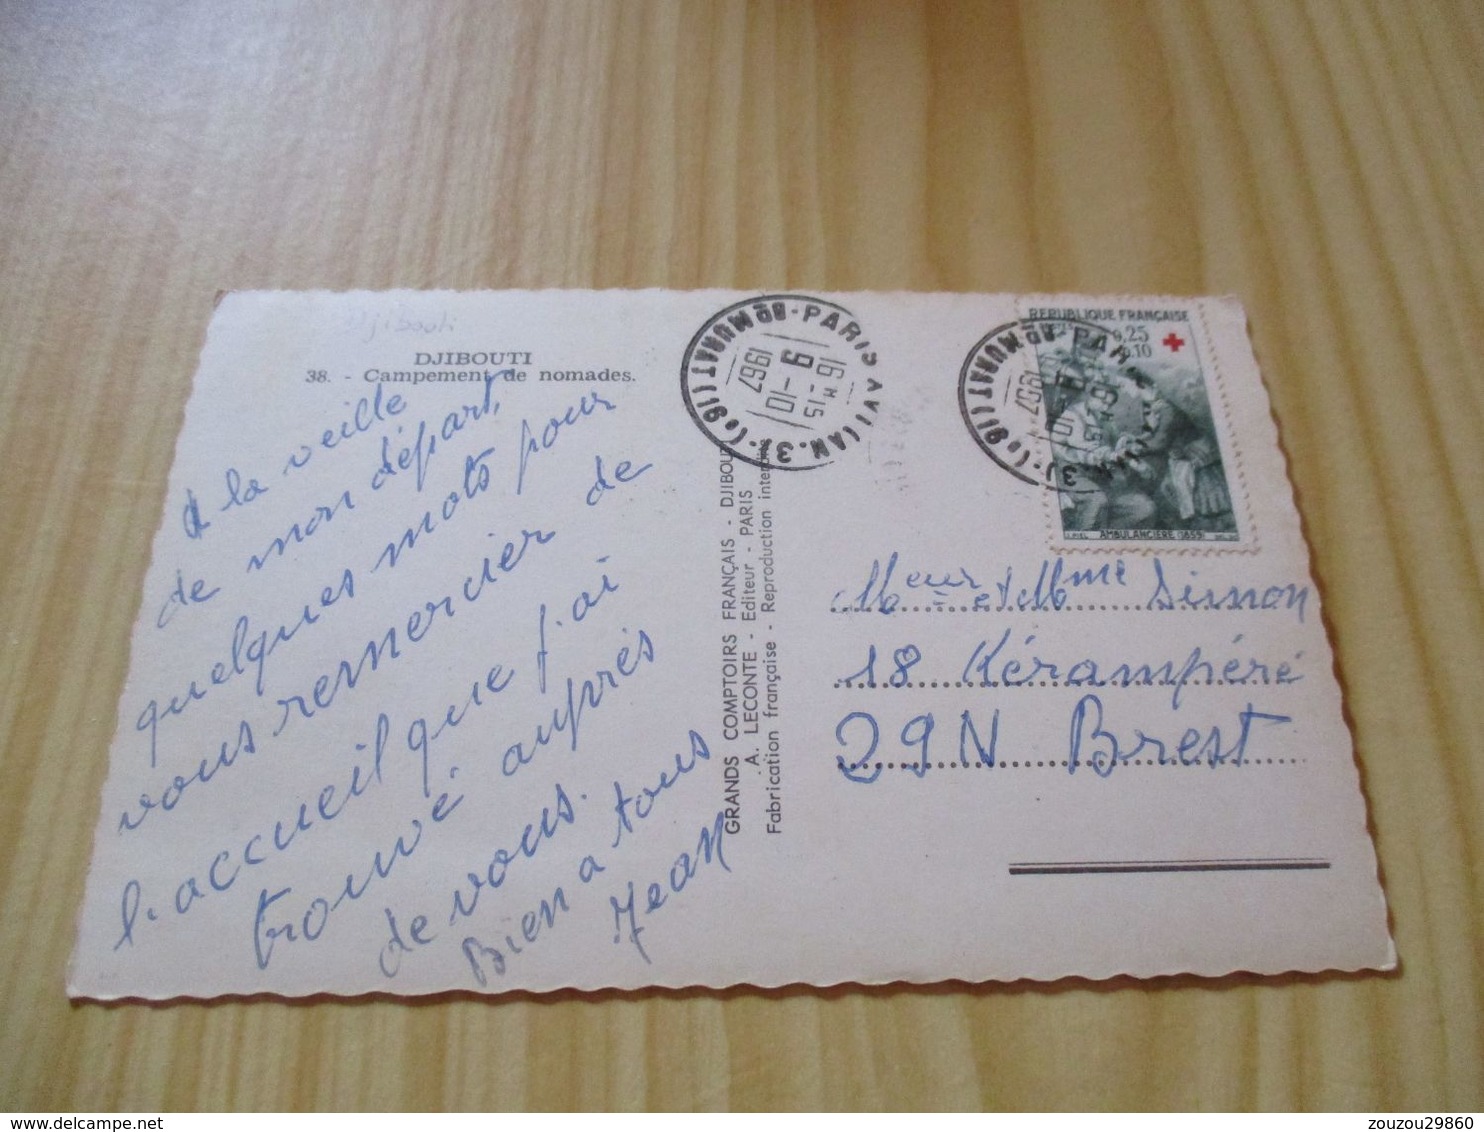 Djibouti
DJIBOUTI
38. - Campement de nomades.
A la veille
de mon départ,
quelques mots pour
vous remercier de
l'accueil que j'ai
trouvé auprès
de vous.
Bien à tous
Jean
GRANDS COMPTOIRS FRANÇAIS - DJIBOUTI
A. LECONTE - Editeur - PARIS
Fabrication française - Reproduction interdite
PARIS XVI (AN.3) - (16e) (BD MURAT)
16H15
9-10
1967
REPUBLIQUE FRANÇAISE
0,25
0,10
AMBULANCIÈRE (1859)
J. PIEL
PARIS XVI (AN.3) - (16e) (BD MURAT)
16H15
9-10
1967
Meur et Mme Simon
18 Kérampéré
29N Brest
delcampe.net
zouzou29860